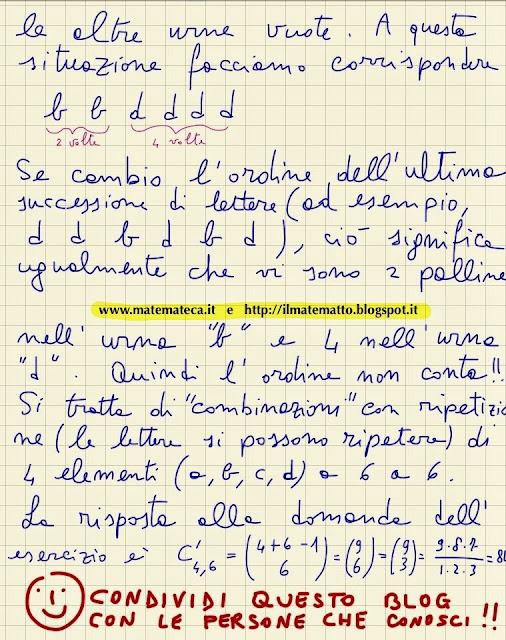 le altre urne vuote. A questa
situazione facciamo corrispondere
b b d d d d
2 volte 4 volte
Se cambio l'ordine dell'ultima
successione di lettere (ad esempio,
d d b d b d), ciò significa
ugualmente che vi sono 2 palline
www.matemateca.it e http://ilmatematto.blogspot.it
nell'urna "b" e 4 nell'urna
"d". Quindi l'ordine non conta!!
Si tratta di "combinazioni" con ripetizio
ne (le lettere si possono ripetere) di
4 elementi (a, b, c, d) a 6 a 6.
La risposta alla domanda dell'
esercizio è: C'4,6 = (4+6-1 6) = (9 6) = (9 3) = 9·8·7/1·2·3 = 84
CONDIVIDI QUESTO BLOG
CON LE PERSONE CHE CONOSCI!!